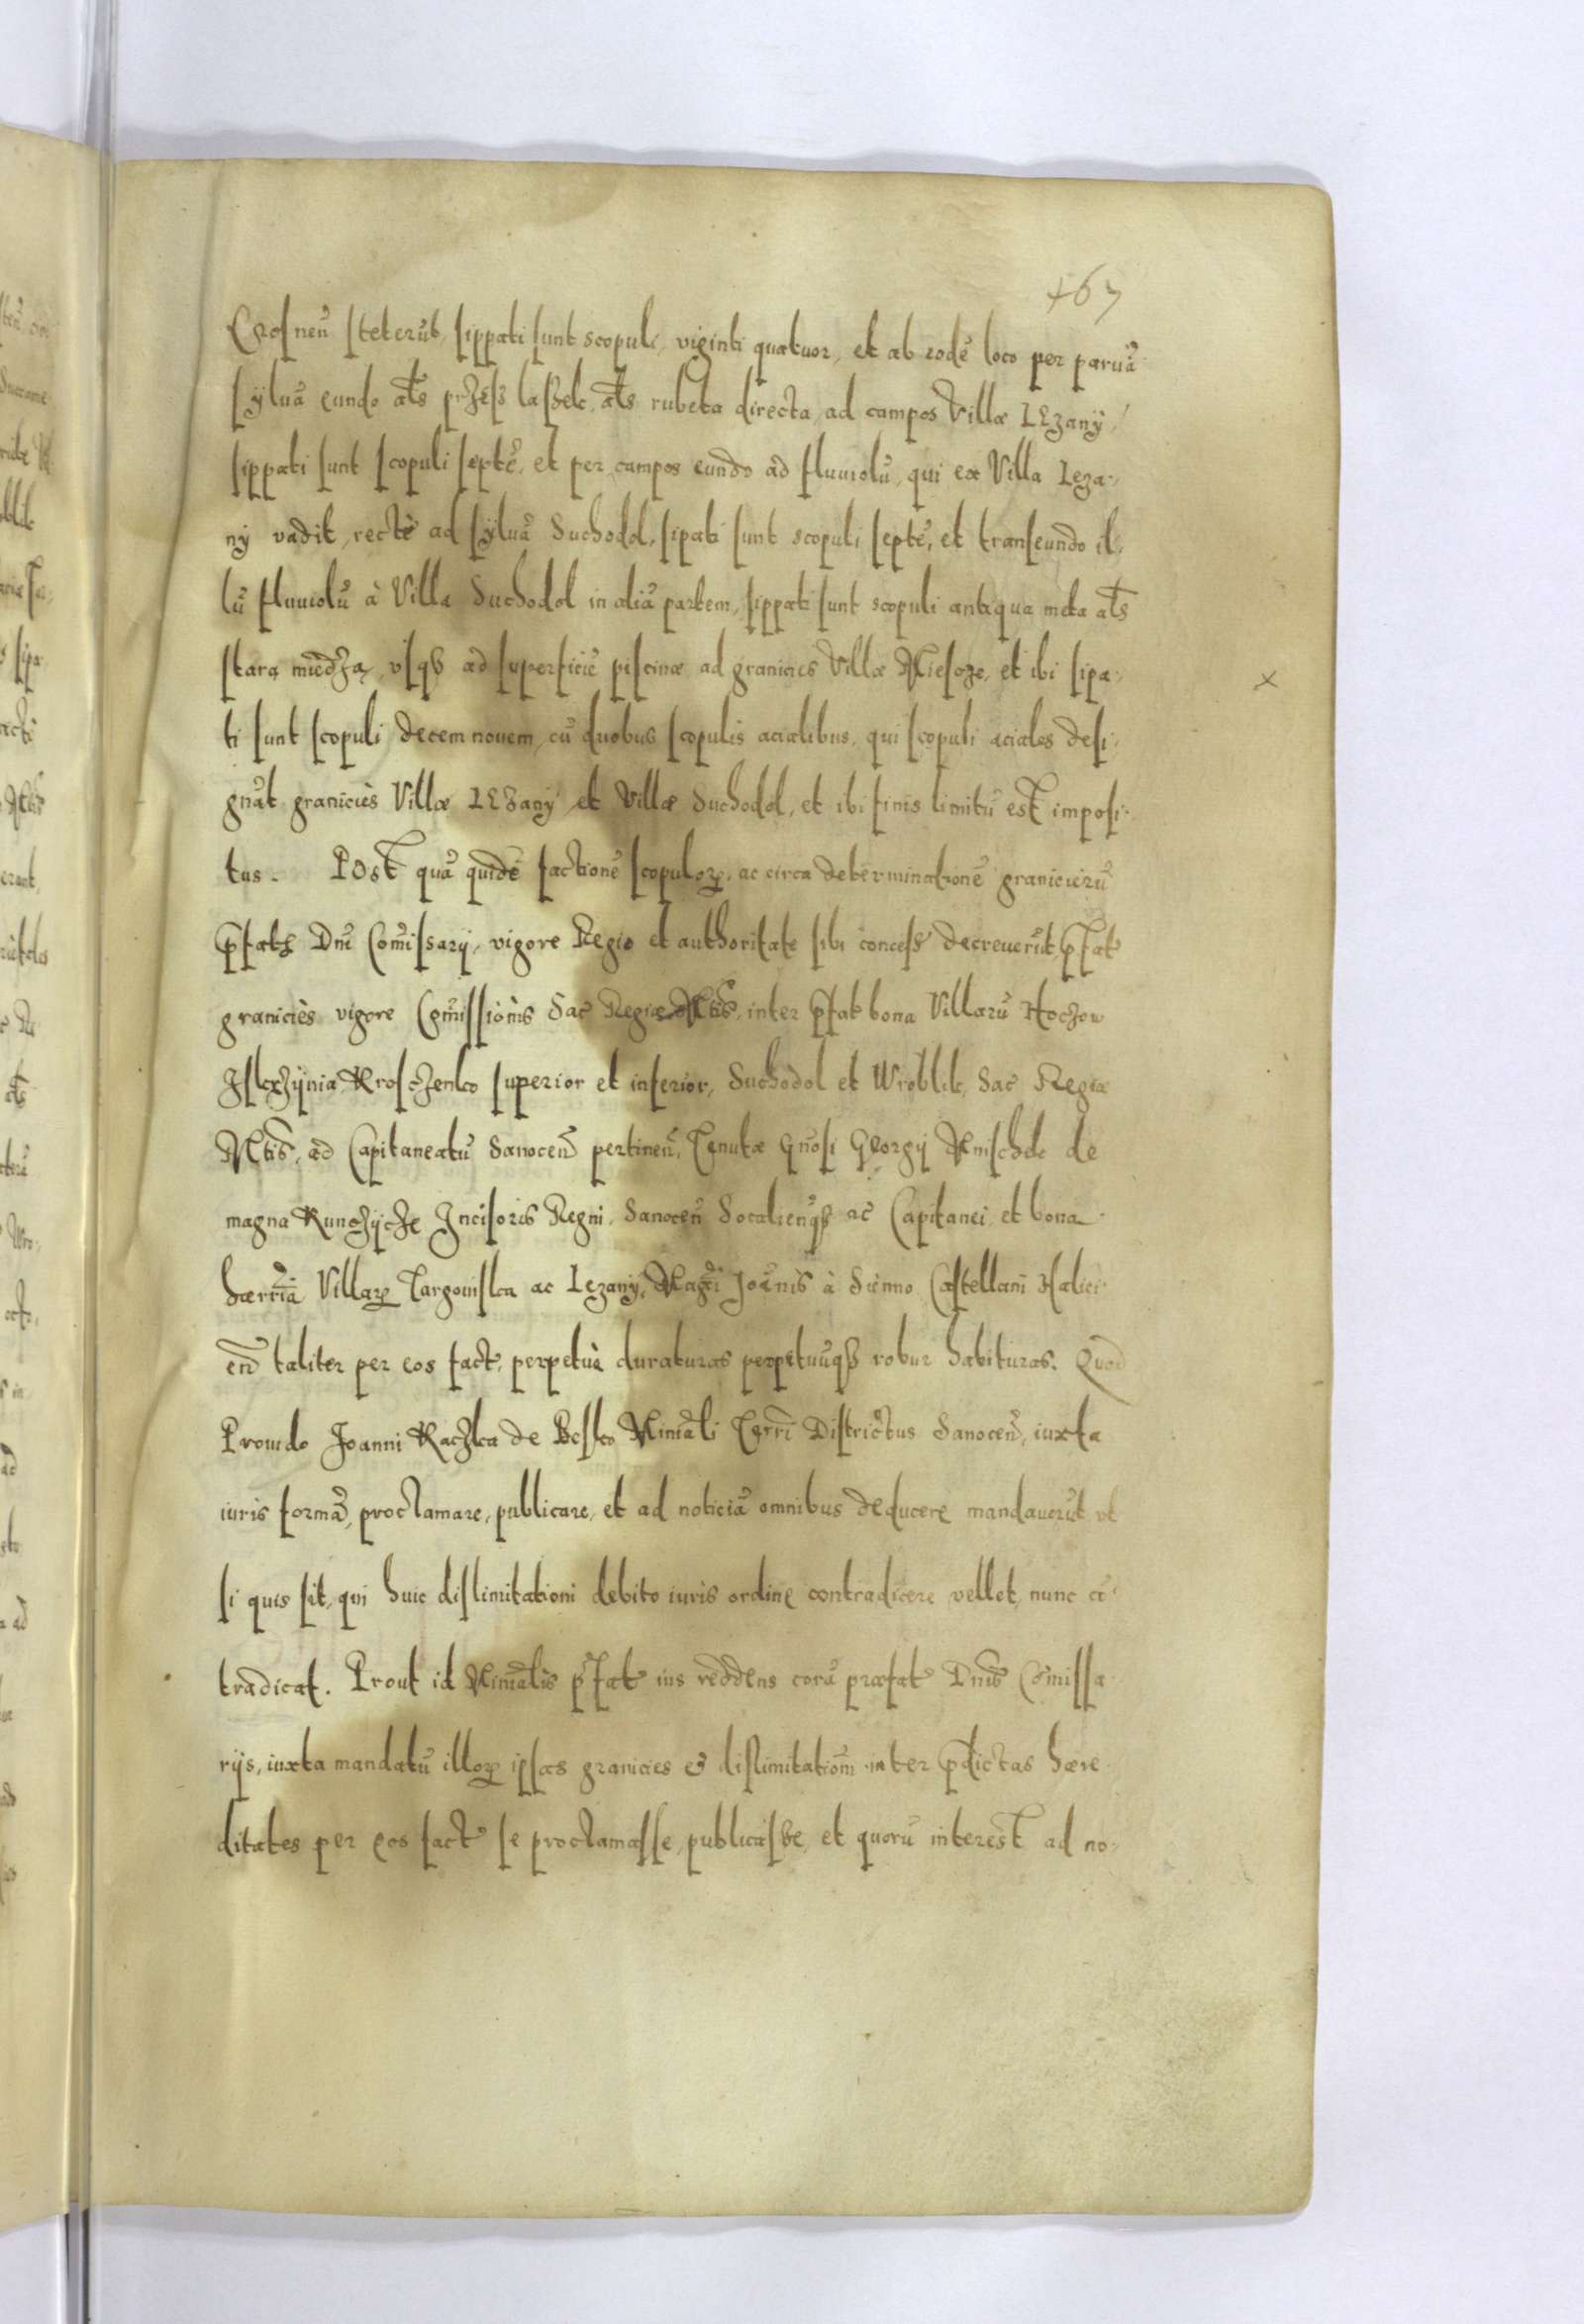 167
Crosneñ steterūt, sippati sunt scopuli viginti quatuor, et ab eodē loco per paruā
syluā eundo ałs przeſs lasſek, ałs rubeta directa, ad campos Villæ Lęzany,
sippati sunt scopuli septē, et per campos eundo ad fluuiolū, qui ex Villa Leza-
ny vadit, rectè ad syluā Suchodol, sipati sunt scopuli septē, et transeundo il-
lū fluuiolū à Villa Suchodol in aliā partem, sippati sunt scopuli antiqua meta ałs
starą miedzą, vsqȝ ad superficiē piscinæ ad granicies Villæ Miesoze, et ibi sipa-
ti sunt scopuli decem nouem, cū duobus scopulis acialibus, qui scopuli aciales desi-
gnāt granicies Villæ Lęzany et Villæ Suchodol, et ibi finis limitū est imposi-
tus. Post quā quidē factionē scopuloꝝ, ac circa determinationē granicierū
p̄fati Dn̄i Com̄issarij, vigore Regio et authoritate sibi concess̄ decreuerūt, p̄fat
granicies vigore Com̄issionis Sac̄ Regiæ Mt̄is, inter p̄fat bona Villarū Hoczow
Iskrzynia Kroſczenko superior et inferior, Suchodol et Wroblik, Sac̄ Regiæ
Mt̄is, ad Capitaneatū Sanoceñ pertineñ, Tenutæ Gn̄osi Georgij Mnischek de
magna Kunczycze Incisoris Regni, Sanoceñ Socalieñqȝ ac Capitanei, et bona
hærr̄ia Villaꝝ Targowiska ac Lezany, Mag̅ci Joānis à Sienno Castellani Halici-
eñ taliter per eos fact, perpetuè duraturas perpetuūqȝ robur habituras. Quod
Prouido Joanni Raczka de Besko Min̄iali Terr̄i Districtus Sanoceñ, iuxta
iuris formā, proclamare, publicare, et ad noticiā omnibus deducere mandauerūt, vt
si quis sit, qui huic dislimitationi debito iuris ordine contradicere vellet, nunc cō-
tradicat. Prout id Min̄ialis p̄fat ius reddens corā præfat Dn̄is Com̄issa-
rijs, iuxta mandatū illoꝝ ipsas granicies & dislimitationē inter p̄dictas hære-
ditates per eos fact se proclamasse, publicasse, et quorū interest ad no-
x